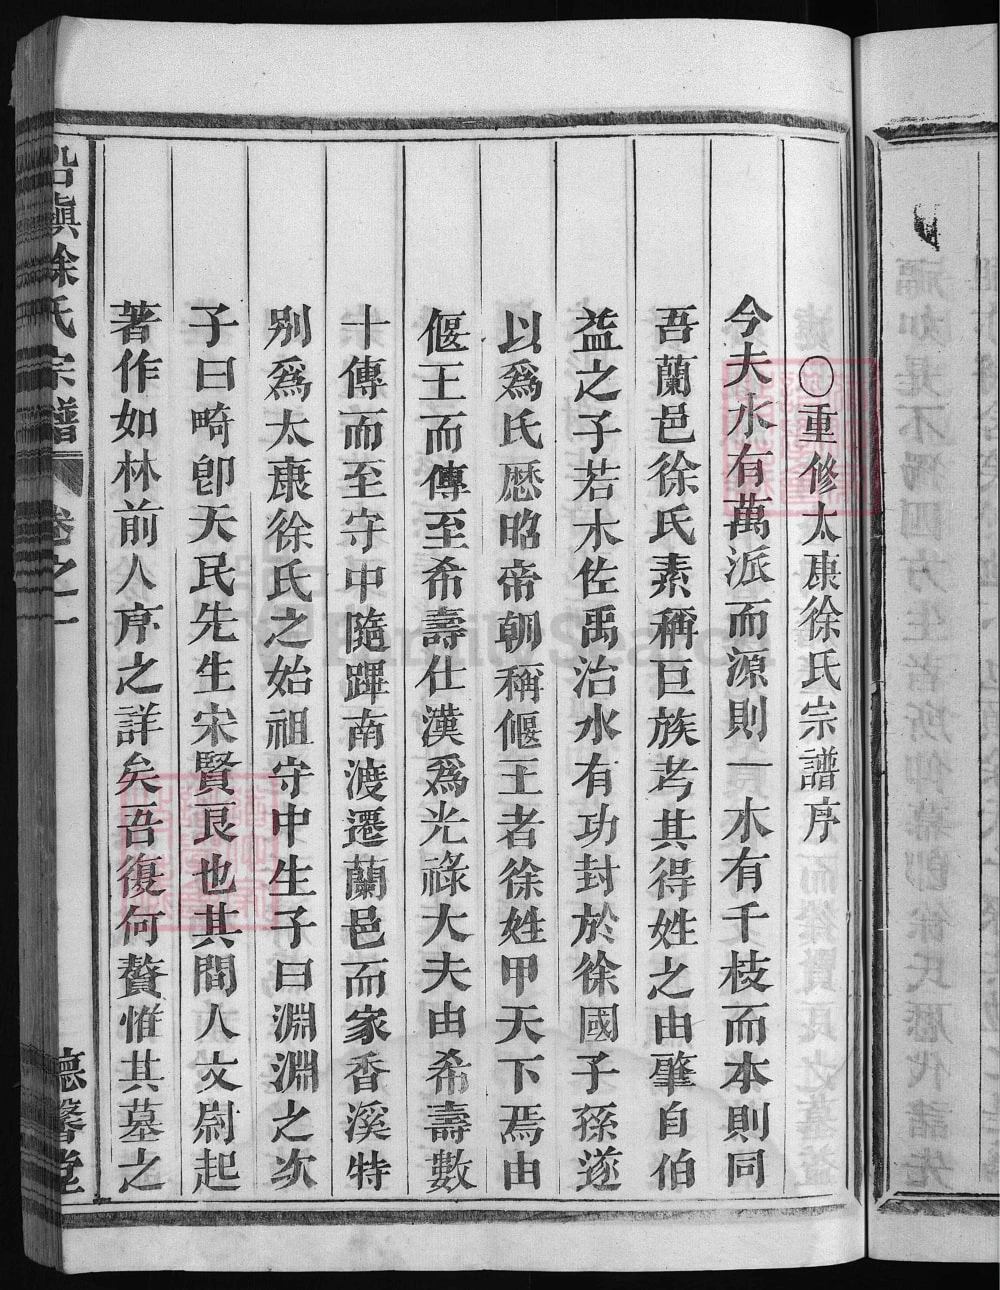 〇重修太康徐氏宗譜序
今夫水有萬派而源則一木有千枝而本則同
吾蘭邑徐氏素稱巨族考其得姓之由肇自伯
益之子若木佐禹治水有功封於徐國子孫遂
以爲氏歷昭帝朝稱偃王者徐姓甲天下焉由
偃王而傳至希壽仕漢爲光祿大夫由希壽數
十傳而至守中隨蹕南渡遷蘭邑而家香溪特
別爲太康徐氏之始祖守中生子曰淵淵之次
子曰畸卽天民先生宋賢良也其間人文蔚起
著作如林前人序之詳矣吾復何贅惟其墓之
徐氏宗譜
卷之一
德馨堂